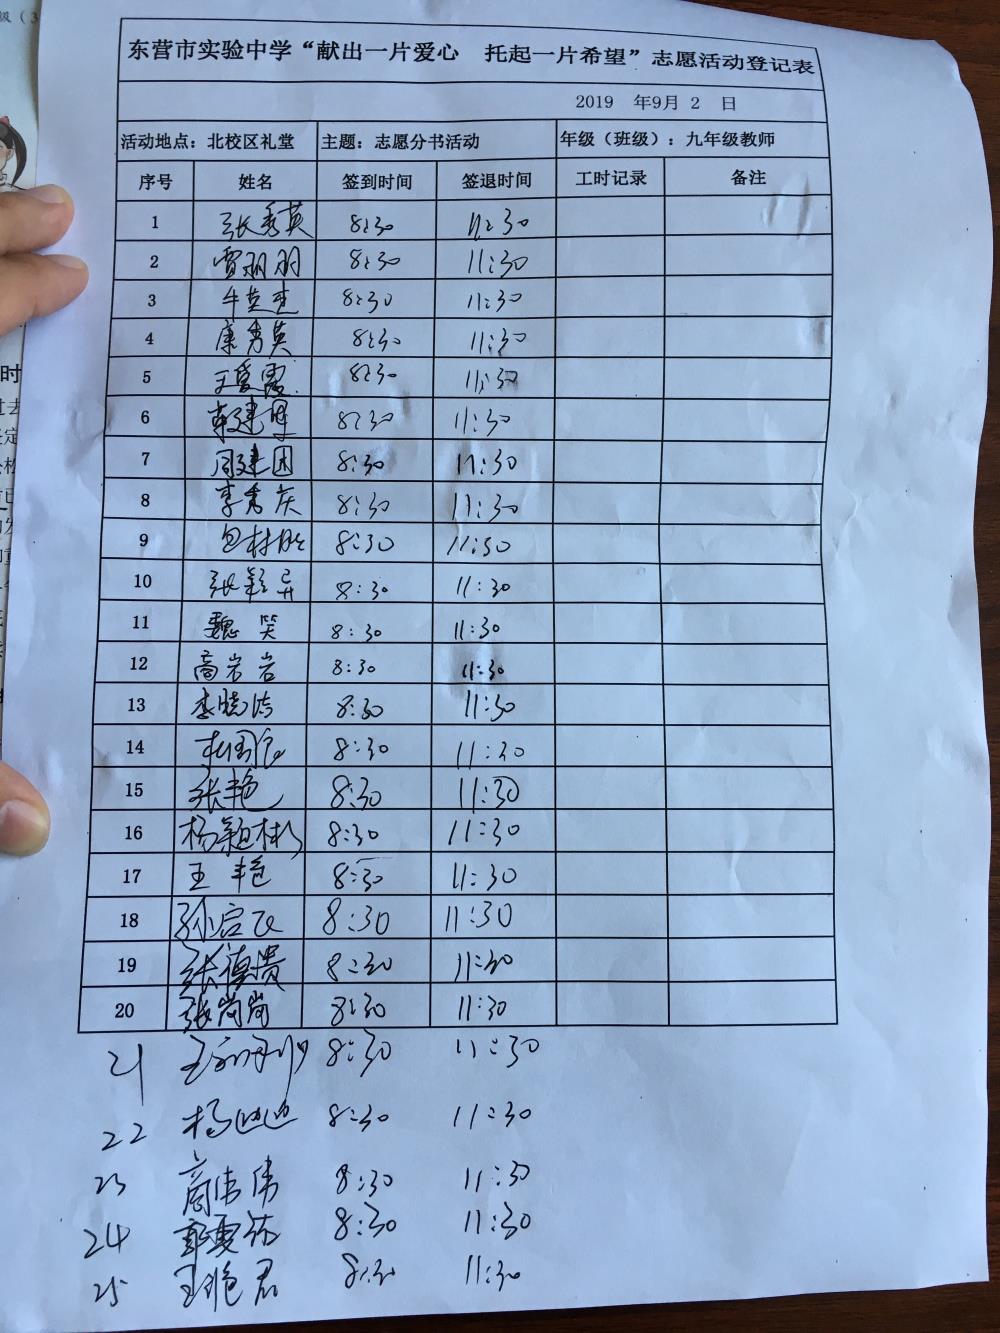 东营市实验中学“献出一片爱心 托起一片希望”志愿活动登记表
2019 年9月 2 日
活动地点：北校区礼堂 主题：志愿分书活动 年级（班级）：九年级教师
序号 姓名 签到时间 签退时间 工时记录 备注
1 张秀英 8:30 11:30
2 贾朋朋 8:30 11:30
3 8:30 11:30
4 康秀英 8:30 11:30
5 王爱霞 8:30 11:30
6 8:30 11:30
7 周建国 8:30 11:30
8 李秀庆 8:30 11:30
9 8:30 11:30
10 张颖异 8:30 11:30
11 魏笑 8:30 11:30
12 高岩岩 8:30 11:30
13 李晓 8:30 11:30
14 8:30 11:30
15 张艳 8:30 11:30
16 杨颖彬 8:30 11:30
17 王艳 8:30 11:30
18 孙启飞 8:30 11:30
19 张德贵 8:30 11:30
20 张岗岗 8:30 11:30
21 王 8:30 11:30
22 杨迎迎 8:30 11:30
23 商伟伟 8:30 11:30
24 8:30 11:30
25 王艳君 8:30 11:30